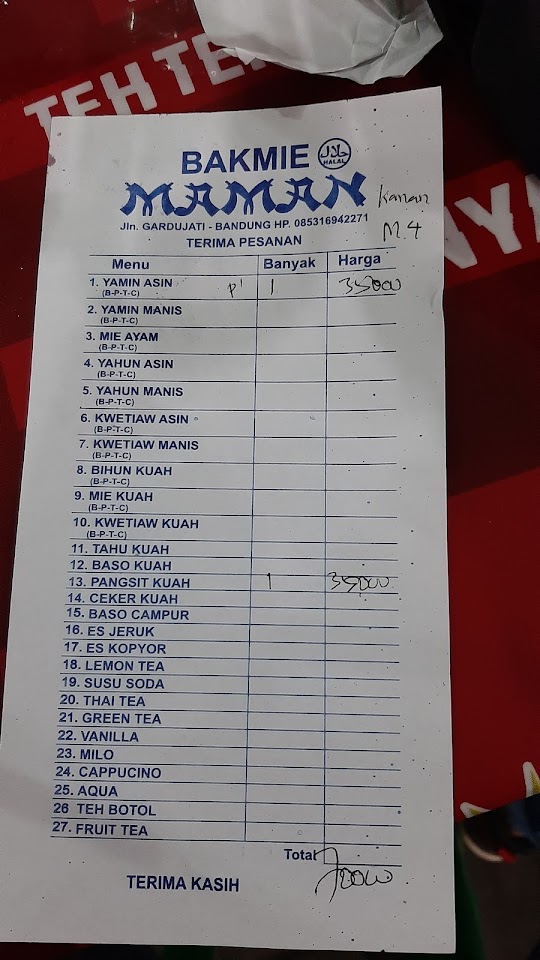 TEH TE
NYA
BAKMIE
HALAL
MAMAN
Kanan
Jln. GARDUJATI - BANDUNG HP. 085316942271
M.4
TERIMA PESANAN
Menu Banyak Harga
1. YAMIN ASIN P' 1 35000
(B-P-T-C)
2. YAMIN MANIS
(B-P-T-C)
3. MIE AYAM
(B-P-T-C)
4. YAHUN ASIN
(B-P-T-C)
5. YAHUN MANIS
(B-P-T-C)
6. KWETIAW ASIN
(B-P-T-C)
7. KWETIAW MANIS
(B-P-T-C)
8. BIHUN KUAH
(B-P-T-C)
9. MIE KUAH
(B-P-T-C)
10. KWETIAW KUAH
(B-P-T-C)
11. TAHU KUAH
12. BASO KUAH
13. PANGSIT KUAH 1 35000
14. CEKER KUAH
15. BASO CAMPUR
16. ES JERUK
17. ES KOPYOR
18. LEMON TEA
19. SUSU SODA
20. THAI TEA
21. GREEN TEA
22. VANILLA
23. MILO
24. CAPPUCINO
25. AQUA
26 TEH BOTOL
27. FRUIT TEA
Total 70000
TERIMA KASIH